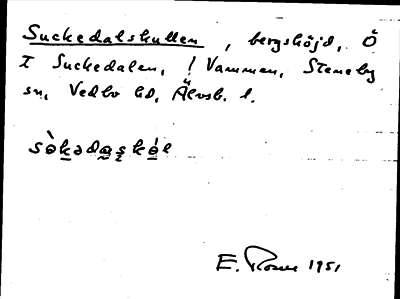 Suckedalskullen, bergshöjd, Ö
I Suckedalen, ! Vammen, Steneby
sn, Vedbo hd, Älvsb. l.
sòkədaskól
E. 1951